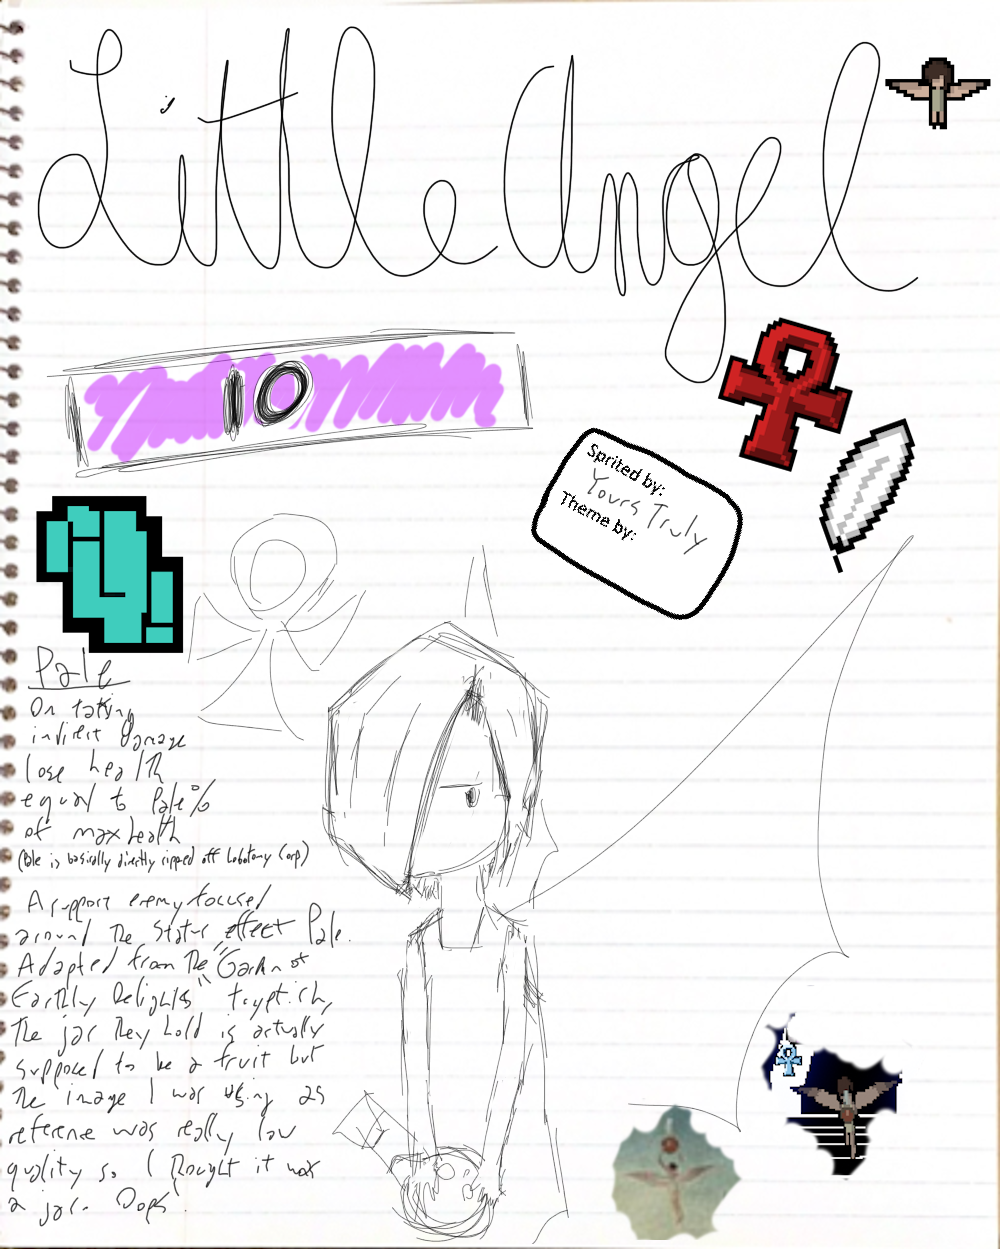 Little Angel
10
Sprited by:
Yours Truly
Theme by:
Pale
On taking
indirect damage
lose health
equal to Pale%
of max health
(Pale is basically directly ripped off Lobotomy Corp)
A support enemy focused
around the status effect Pale.
Adapted from the "Garden of
Earthly Delights" tryptich,
the jar they hold is actually
supposed to be a fruit but
the image I was using as
reference was really low
quality so I thought it was
a jar. Oops.